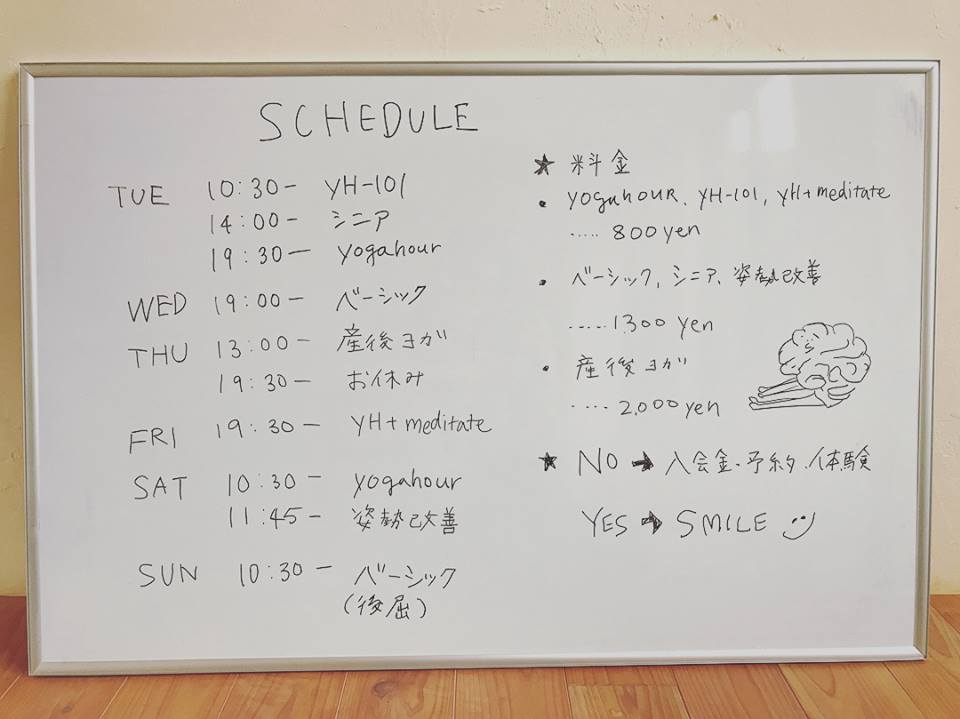 SCHEDULE
TUE 10:30- YH-101
14:00- シニア
19:30- yogahour
WED 19:00- ベーシック
THU 13:00- 産後ヨガ
19:30- お休み
FRI 19:30- YH+meditate
SAT 10:30- yogahour
11:45- 姿勢改善
SUN 10:30- ベーシック
(後屈)
★ 料金
• yogahour、YH-101, YH+meditate
..... 800yen
• ベーシック, シニア、姿勢改善
..... 1.300 yen
• 産後ヨガ
.... 2.000 yen
★ NO → 入会金・予約・体験
YES → SMILE